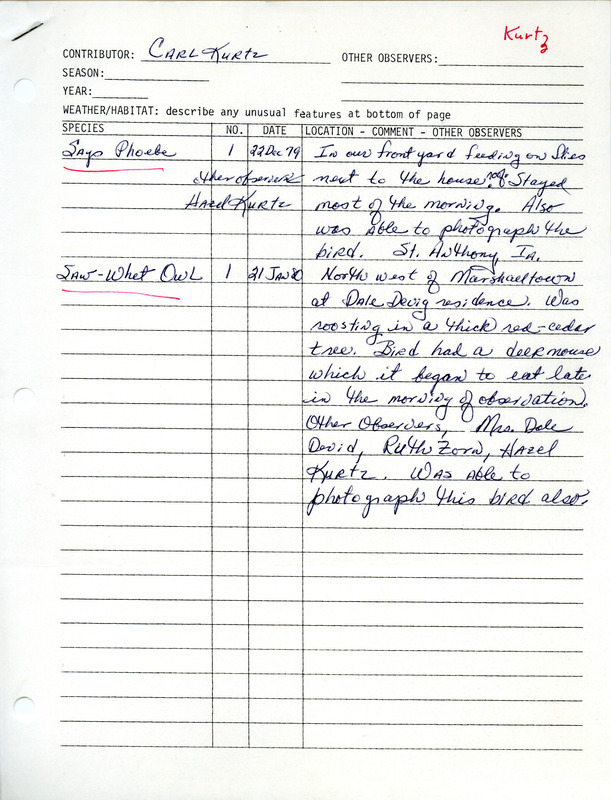 Kurtz
CONTRIBUTOR: Carl Kurtz OTHER OBSERVERS:
SEASON:
YEAR:
WEATHER/HABITAT: describe any unusual features at bottom of page
SPECIES NO. DATE LOCATION - COMMENT - OTHER OBSERVERS
Says Phoebe 1 22 Dec 79 In our front yard feeding on flies
other observer next to the house. Stayed
Hazel Kurtz most of the morning. Also
was able to photograph the
bird. St. Anthony, Ia.
Saw-Whet Owl 1 21 Jan 80 North west of Marshalltown
at Dale residence. Was
roosting in a thick red-cedar
tree. Bird had a deermouse
which it began to eat late
in the morning of observation.
Other Observers, Mrs. Dale
David, Ruth Zorn, Hazel
Kurtz. Was able to
photograph this bird also.